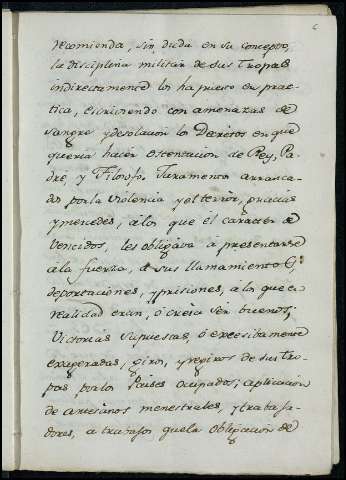 6
recomienda, sin duda en su concepto,
la disciplina militar de sus Tropas
indirectamente los ha puesto en prac-
tica, escriviendo con amenazas de
sangre y desolacion los Decretos en que
queria hacer ostentacion de Rey, Pa-
dre, y Filosofo. Juramentos arranca-
dos por la violencia y el terror, gracias
y mercedes, a los que el caracter de
vencidos, les obligava à presentarse
à la fuerza, à sus llamamientos,
deportaciones, y prisiones, a los que en
realidad eran, ó creia ser buenos;
Victorias supuestas, ó excesibamente
exageradas, giros, y regiros de sus tro-
pas por los Paises ocupados; aplicacion
de artesanos menestrales, y trabaja-
dores, a trabajos que la obligacion de